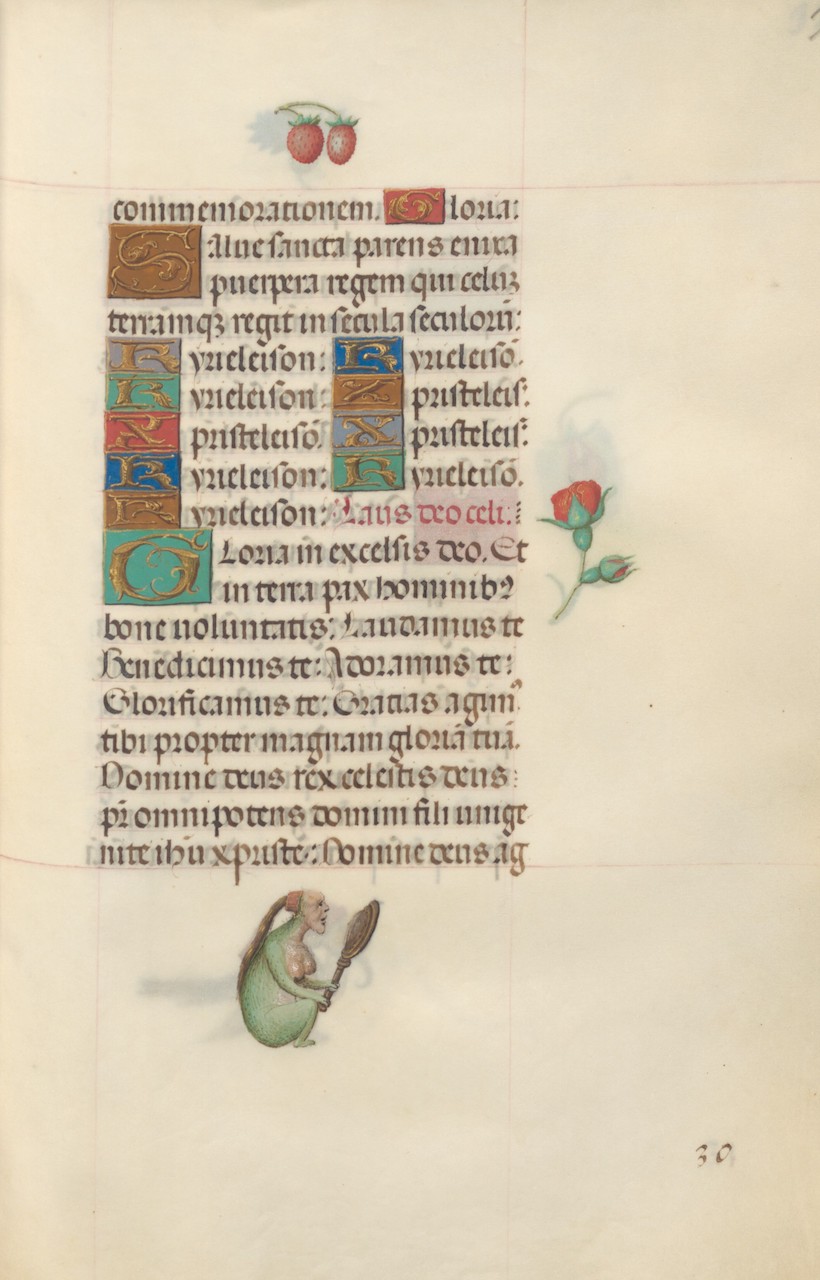 commemorationem. Gloria:
Salue sancta parens enixa
puerpera regem qui celuꝫ
terramqꝫ regit in secula seculoruꝫ:
Kyrieleison: Kyrieleisō.
Kyrieleison: Xpristeleis:
Xpristeleisō. Xpristeleis:
Kyrieleison: Kyrieleisō.
Kyrieleison: Laus deo celi:
Gloria in excelsis deo. Et
in terra pax hominibꝰ
bone uoluntatis: Laudamus te
Benedicimus te: Adoramus te:
Glorificamus te: Gratias agimꝰ
tibi propter magnam gloriā tuā.
Domine deus rex celestis deus:
pr̄ omnipotens domini fili unige
nite ihū xpriste: Domine deus ag
30